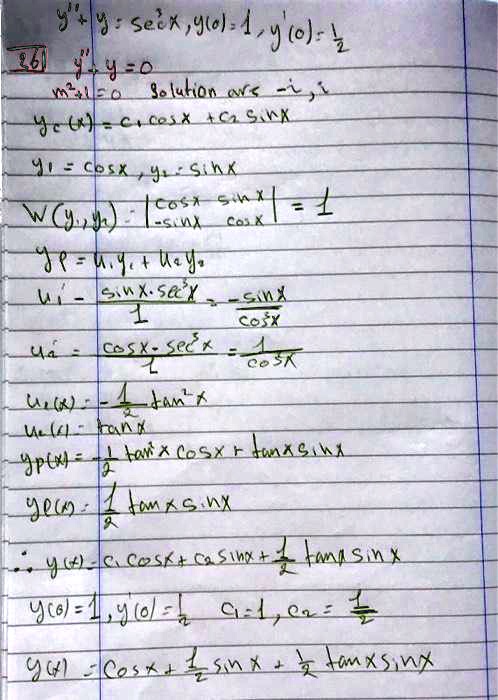 y'' + y = sec³x, y(0) = 1, y'(0) = 1/2
26] y'' + y = 0
m²+1 = 0 Solution are -i, i
y_c(x) = c₁ cosx + c₂ sinx
y₁ = cosx, y₂ = sinx
W(y₁,y₂) = |cosx sinx; -sinx cosx| = 1
y_p = u₁y₁ + u₂y₂
u₁' = - sinx·sec³x/1 = -sinx/cos³x
u₂' = cosx·sec³x/1 = 1/cos²x
u₁(x) = -1/2 tan²x
u₂(x) = tanx
y_p(x) = -1/2 tan²x cosx + tanx sinx
y_p(x) = 1/2 tanx sinx
∴ y(x) = c₁ cosx + c₂ sinx + 1/2 tanx sinx
y(0) = 1, y'(0) = 1/2 c₁ = 1, c₂ = 1/2
y(x) = cosx + 1/2 sinx + 1/2 tanx sinx